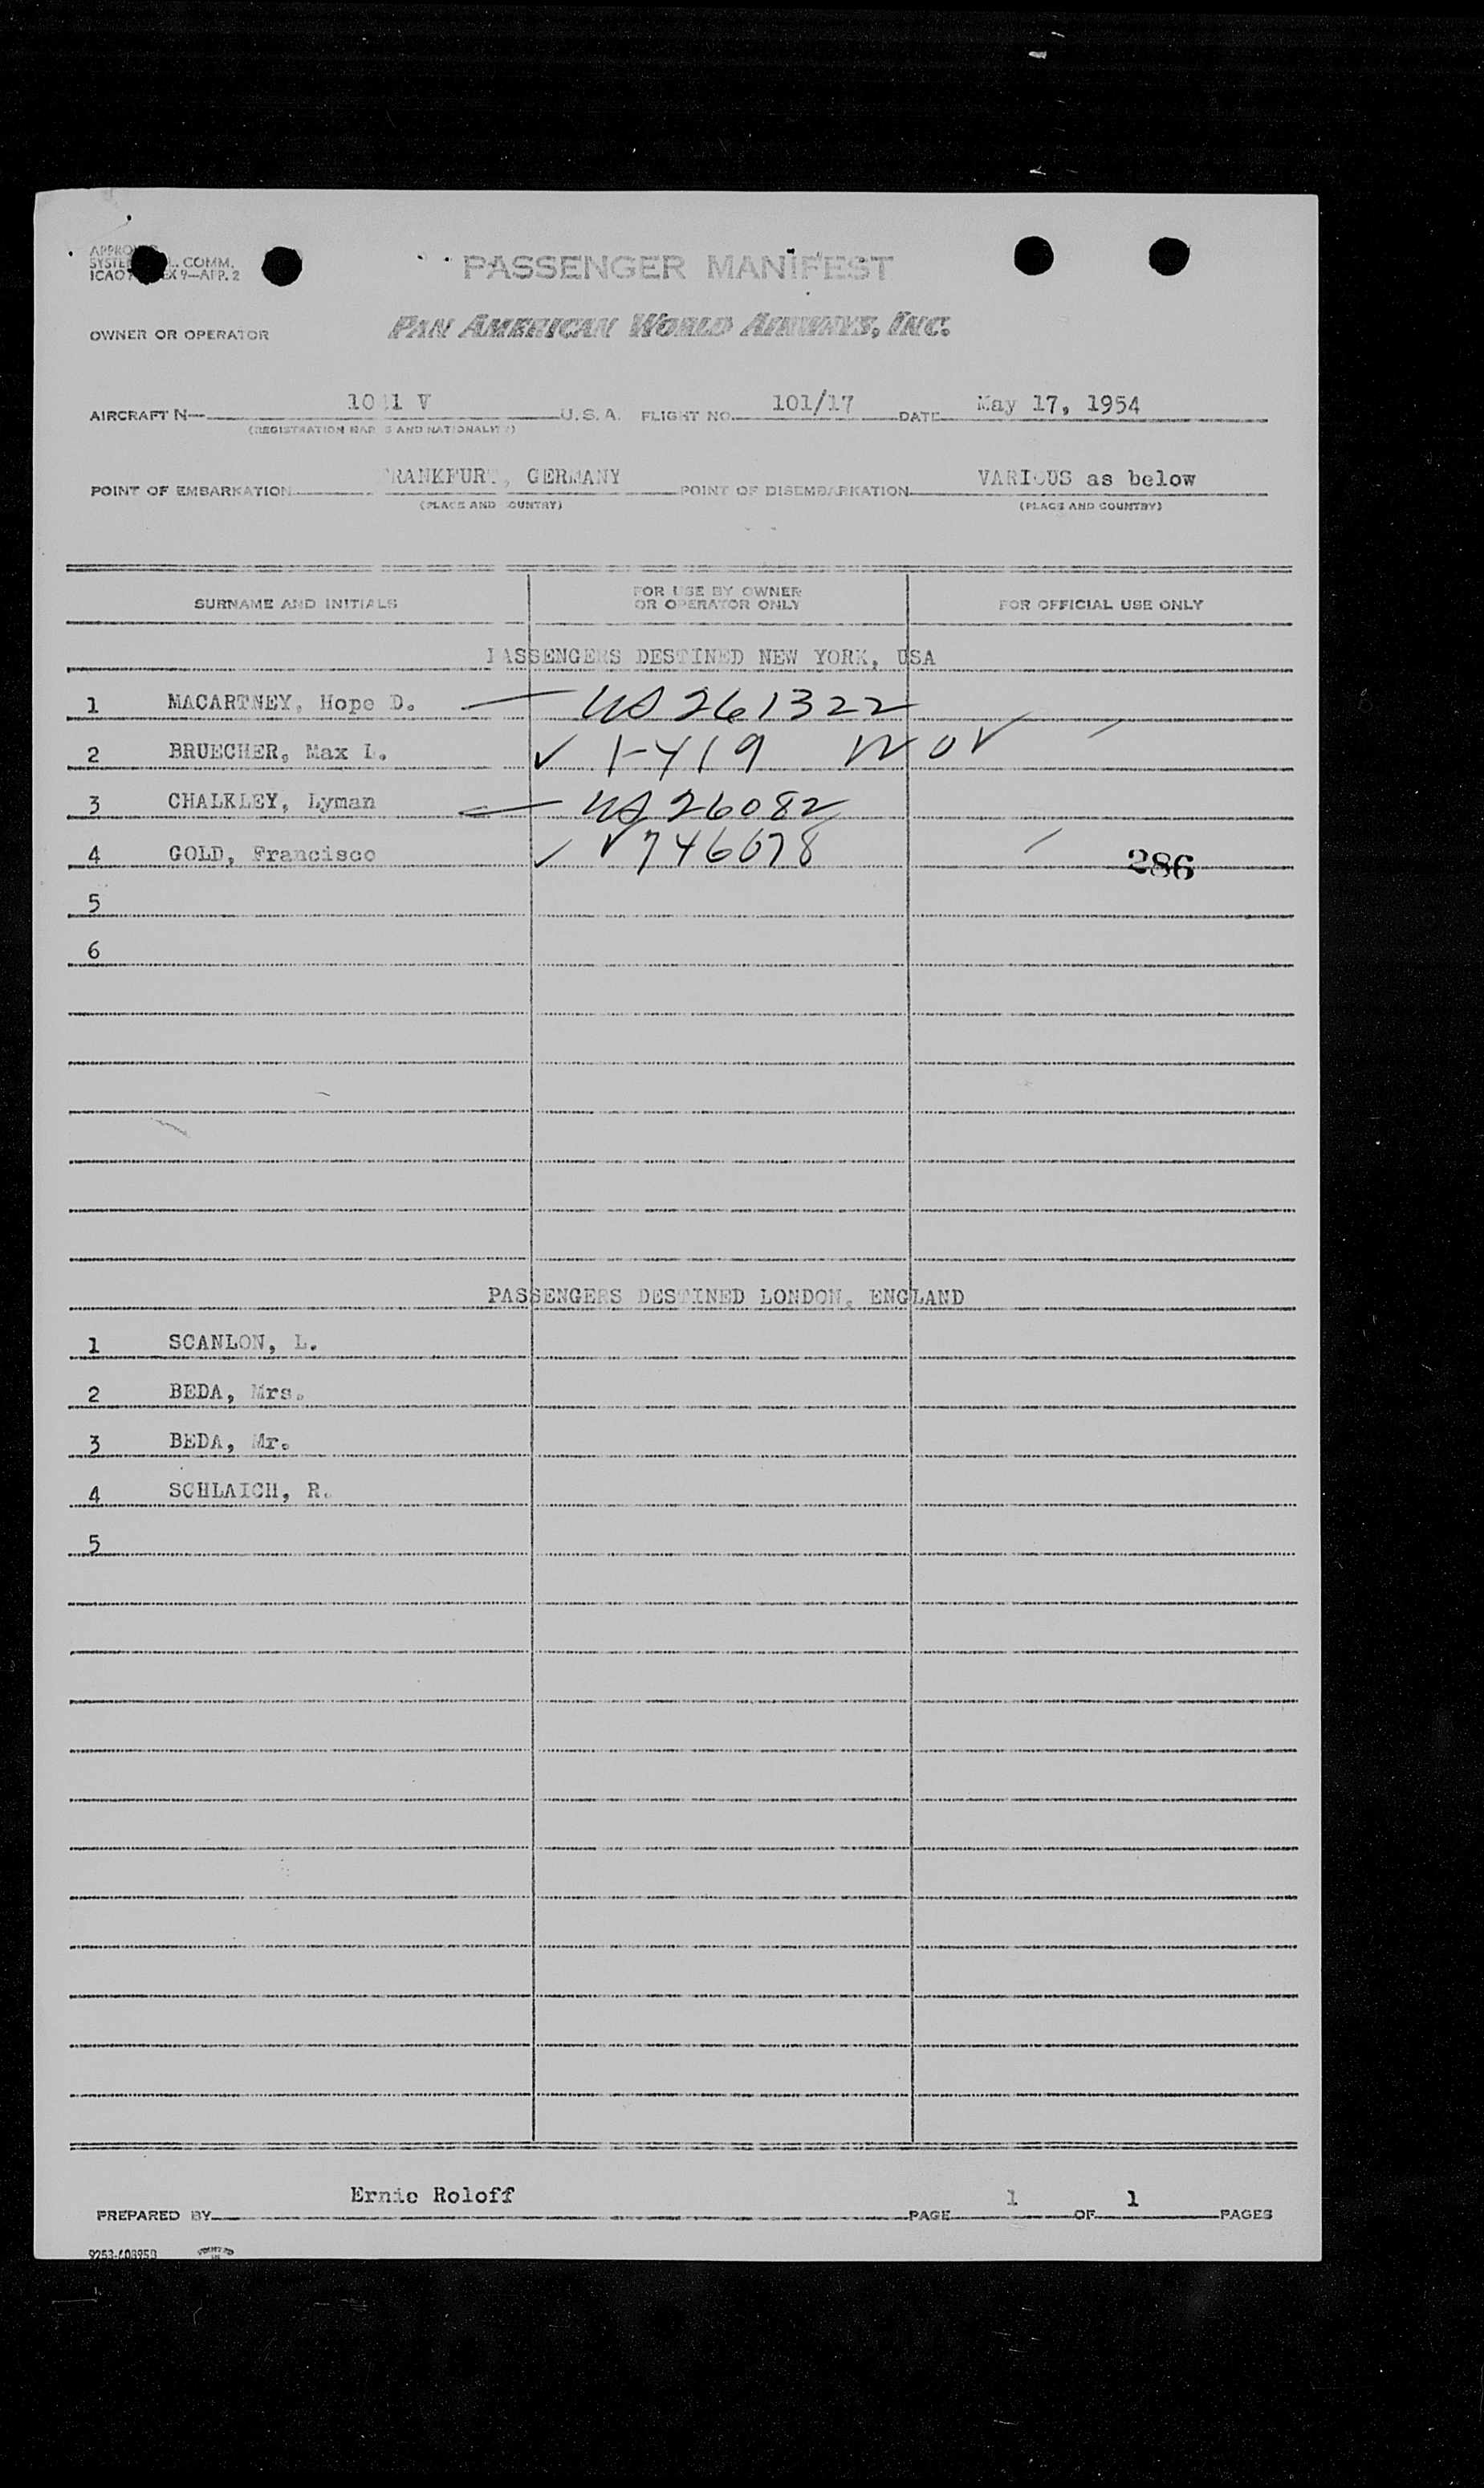 PASSENGER MANIFEST
COMM.
9—APP. 2
OWNER OR OPERATOR PAN AMERICAN WORLD AIRWAYS, INC.
AIRCRAFT N— V U.S.A. FLIGHT NO. 101/17 DATE May 17, 1954
(REGISTRATION MARKS AND NATIONALITY)
POINT OF EMBARKATION FRANKFURT, GERMANY POINT OF DISEMBARKATION VARIOUS as below
(PLACE AND COUNTRY) (PLACE AND COUNTRY)
SURNAME AND INITIALS FOR USE BY OWNER OR OPERATOR ONLY FOR OFFICIAL USE ONLY
PASSENGERS DESTINED NEW YORK, USA
1 MACARTNEY, Hope D. US 261322
2 BRUECHER, Max L. ✓
3 CHALKLEY, Lyman US 26082
4 GOLD, Francisco ✓ 286
5
6
PASSENGERS DESTINED LONDON, ENGLAND
1 SCANLON, L.
2 BEDA, Mrs.
3 BEDA, Mr.
4 SCHLAICH, R.
5
PREPARED BY Ernie Roloff PAGE 1 OF 1 PAGES